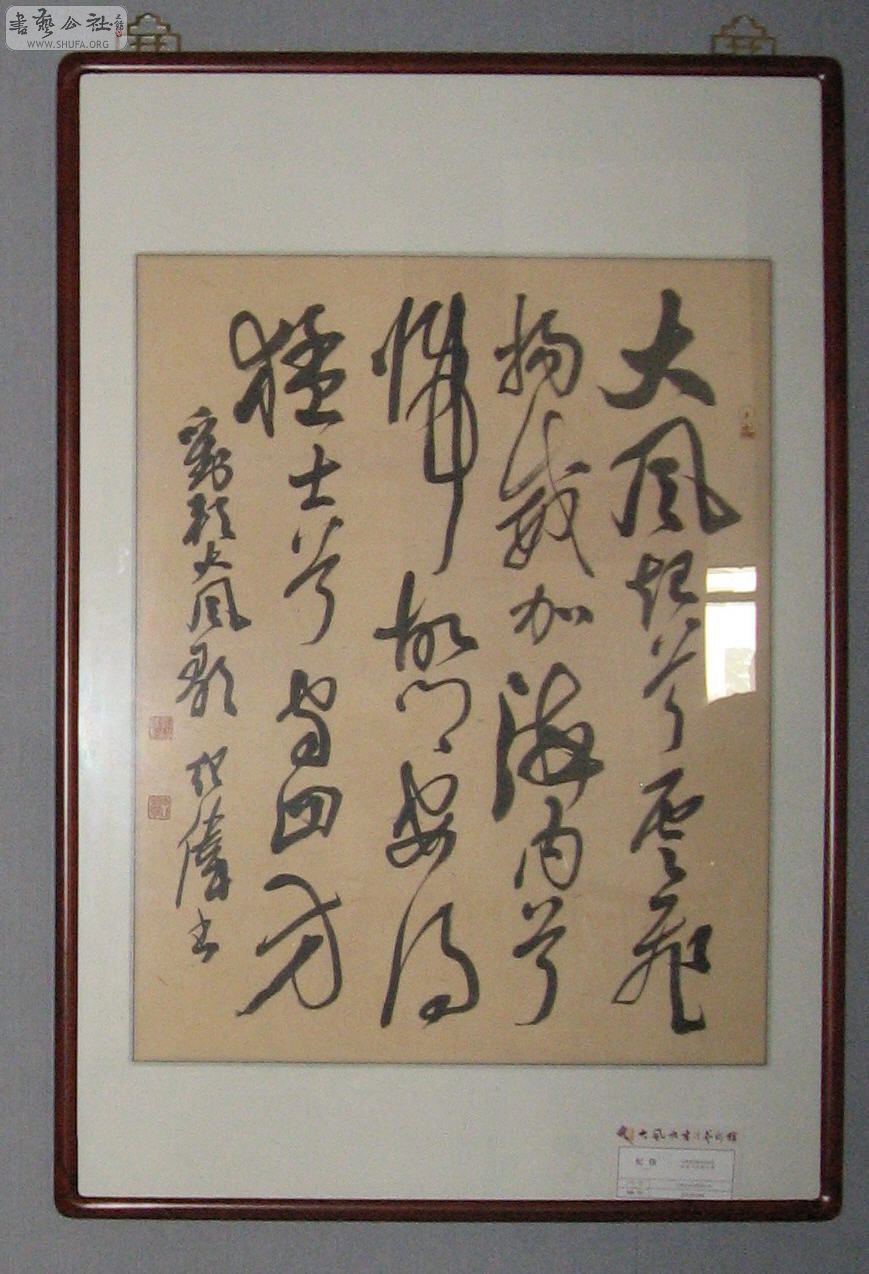 書藝公社
WWW.SHUFA.ORG
大風起兮雲飛
揚威加海內兮
歸故鄉安得
猛士兮守四方
劉邦大風歌 紀偉書